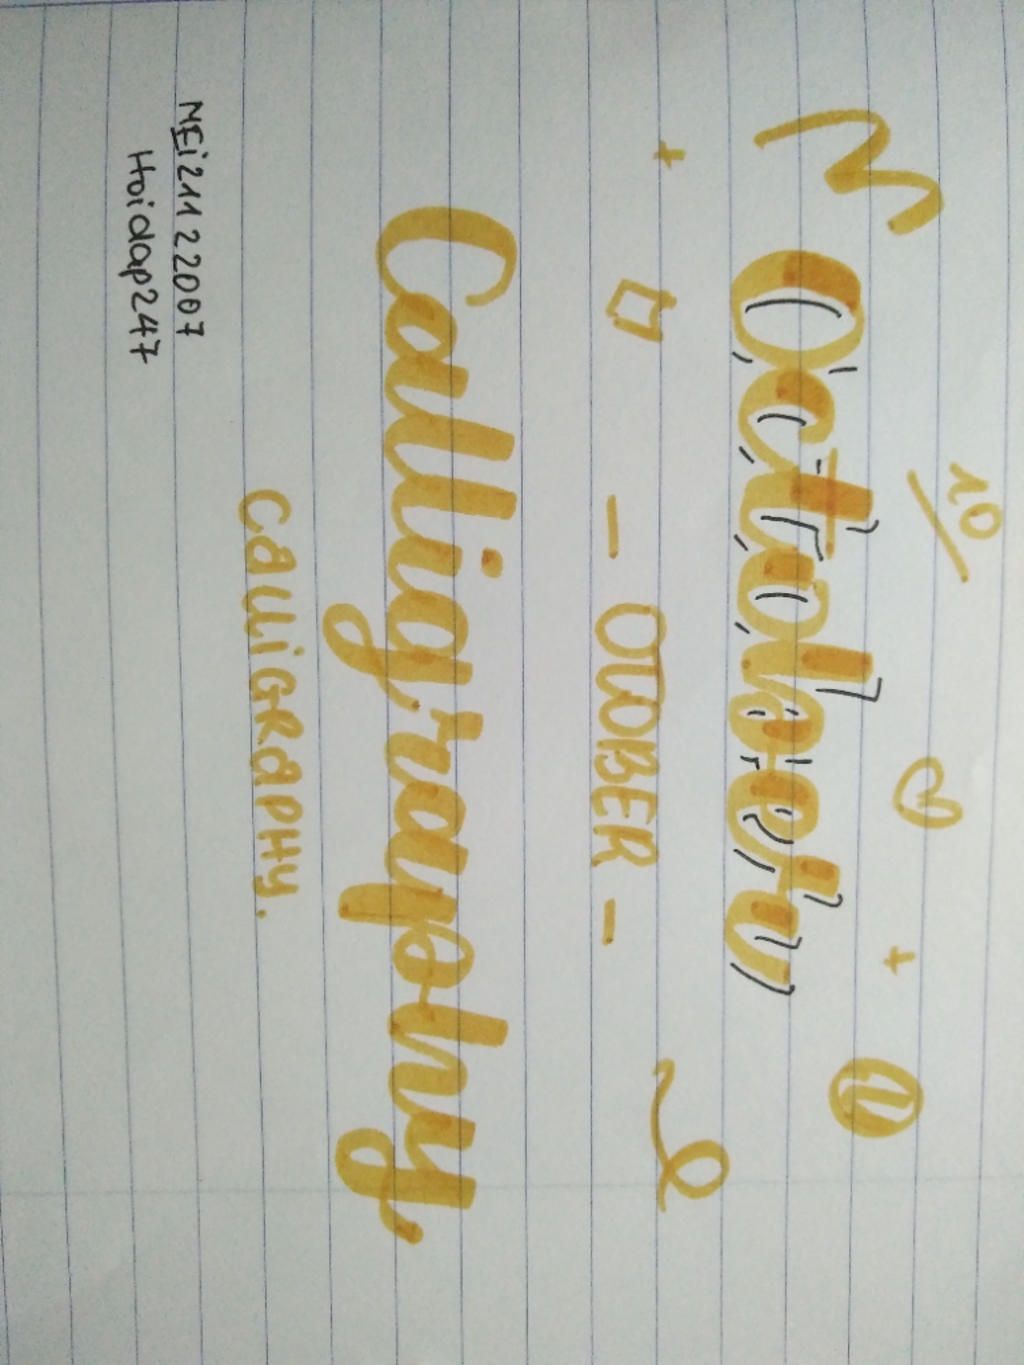 10/
N
October
- OCTOBER -
Calligraphy
calliGRaPHy.
NEi21122007
Hoidap247